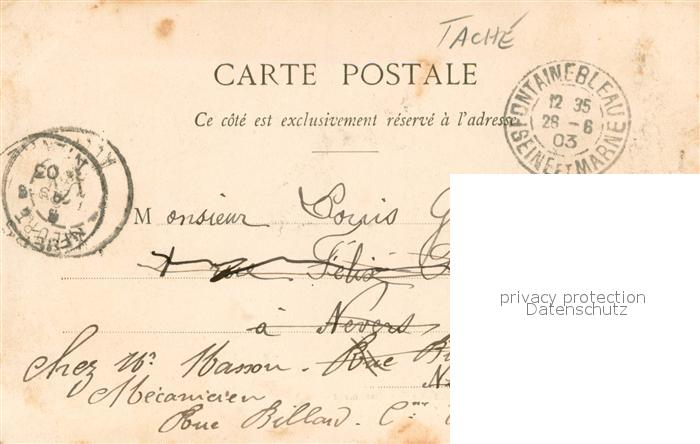 TACHÉ
CARTE POSTALE
FONTAINEBLEAU
12 35
28 - 6
03
SEINE ET MARNE
Ce côté est exclusivement réservé à l'adresse
NEVERS
03
Monsieur Louis G
rue Félix
à Nevers
privacy protection
Datenschutz
Chez Mr Masson - Rue
Mécanicien
Rue Billard.